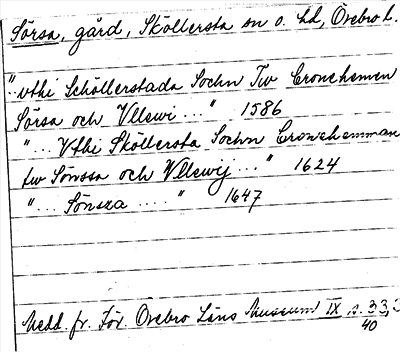 Sörsa, gård, Sköllersta sn o. hd, Örebro l.
"vthi Schöllerstada Sochn Tw Cronehemen
Sörsa och Vllewi..." 1586
"... Vthi Sköllersta Sochn Cronehemman
tw Sönssa och Vllewij..." 1624
"... Sönsza ....." 1647
Medd. fr. För. Örebro Läns Museum IX s. 33,
40